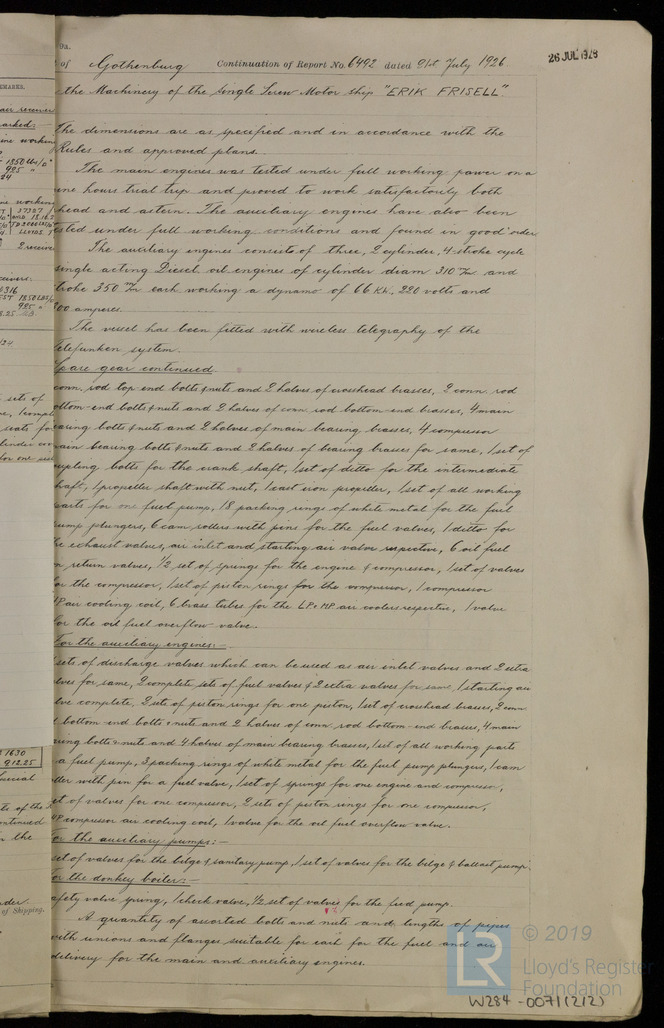 Da.
of Gothenburg Continuation of Report No. 6492 dated 21st July 1926
26 JUL 1926
the Machinery of the Single Screw Motor Ship "ERIK FRISELL"
The dimensions are as specified and in accordance with the
Rules and approved plans.
The main engines was tested under full working power on a
nine hours trial trip and proved to work satisfactorily both
ahead and astern. The auxiliary engines have also been
tested under full working conditions and found in good order
The auxiliary engines consists of three, 2 cylinder, 4-stroke cycle
single acting Diesel oil engines of cylinder diam 310 m/m and
stroke 350 m/m each working a dynamo of 66 KW. 220 volts and
300 amperes.
The vessel has been fitted with wireless telegraphy of the
Telefunken system.
Spare gear continued.
conn. rod top end bolts & nuts and 2 halves of crosshead brasses, 2 conn. rod
bottom-end bolts & nuts and 2 halves of conn rod bottom-end brasses, 4 main
bearing bolts & nuts and 2 halves of main bearing brasses, 4 compressor
main bearing bolts & nuts and 2 halves of bearing brasses for same, 1 set of
coupling bolts for the crank shaft, 1 set of ditto for the intermediate
shaft, 1 propeller shaft with nut, 1 cast iron propeller, 1 set of all working
parts for one fuel pump, 18 packing rings of white metal for the fuel
pump plungers, 6 cam rollers with pins for the fuel valves, 1 ditto for
the exhaust valves, air inlet and starting air valve respective, 6 oil fuel
non return valves, 1/2 set of springs for the engine & compressor, 1 set of valves
for the compressor, 1 set of piston rings for the compressor, 1 compressor
HP air cooling coil, 6 brass tubes for the LP & MP air coolers respective, 1 valve
for the oil fuel overflow valve.
For the auxiliary engines:-
sets of discharge valves which can be used as air inlet valves and 2 extra
valves for same, 2 complete sets of fuel valves & 2 extra valves for same, 1 starting air
valve complete, 2 sets of piston rings for one piston, 1 set of crosshead brasses, 2 conn
rod bottom-end bolts & nuts and 2 halves of conn. rod bottom-end brasses, 4 main
bearing bolts & nuts and 4 halves of main bearing brasses, 1 set of all working parts
a fuel pump, 3 packing rings of white metal for the fuel pump plungers, 1 cam
roller with pin for a fuel valve, 1 set of springs for one engine and compressor,
set of valves for one compressor, 2 sets of piston rings for one compressor,
HP compressor air cooling coil, 1 valve for the oil fuel overflow valve.
For the auxiliary pumps:-
set of valves for the bilge & sanitary pump, 1 set of valves for the bilge & ballast pump.
For the donkey boiler:-
safety valve spring, 1 check valve, 1/2 set of valves for the feed pump.
A quantity of assorted bolts and nuts and lengths of pipes
with unions and flanges suitable for each for the fuel and air
delivery for the main and auxiliary engines.
© 2019
LR Lloyd's Register
Foundation
W284-0071(2/2)